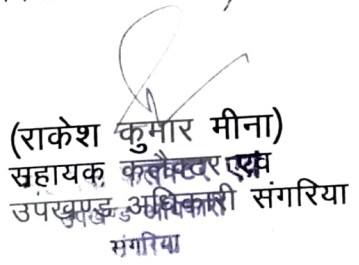 (राकेश कुमार मीना)
सहायक कलैक्टर एवं
उपखण्ड अधिकारी संगरिया
संगरिया